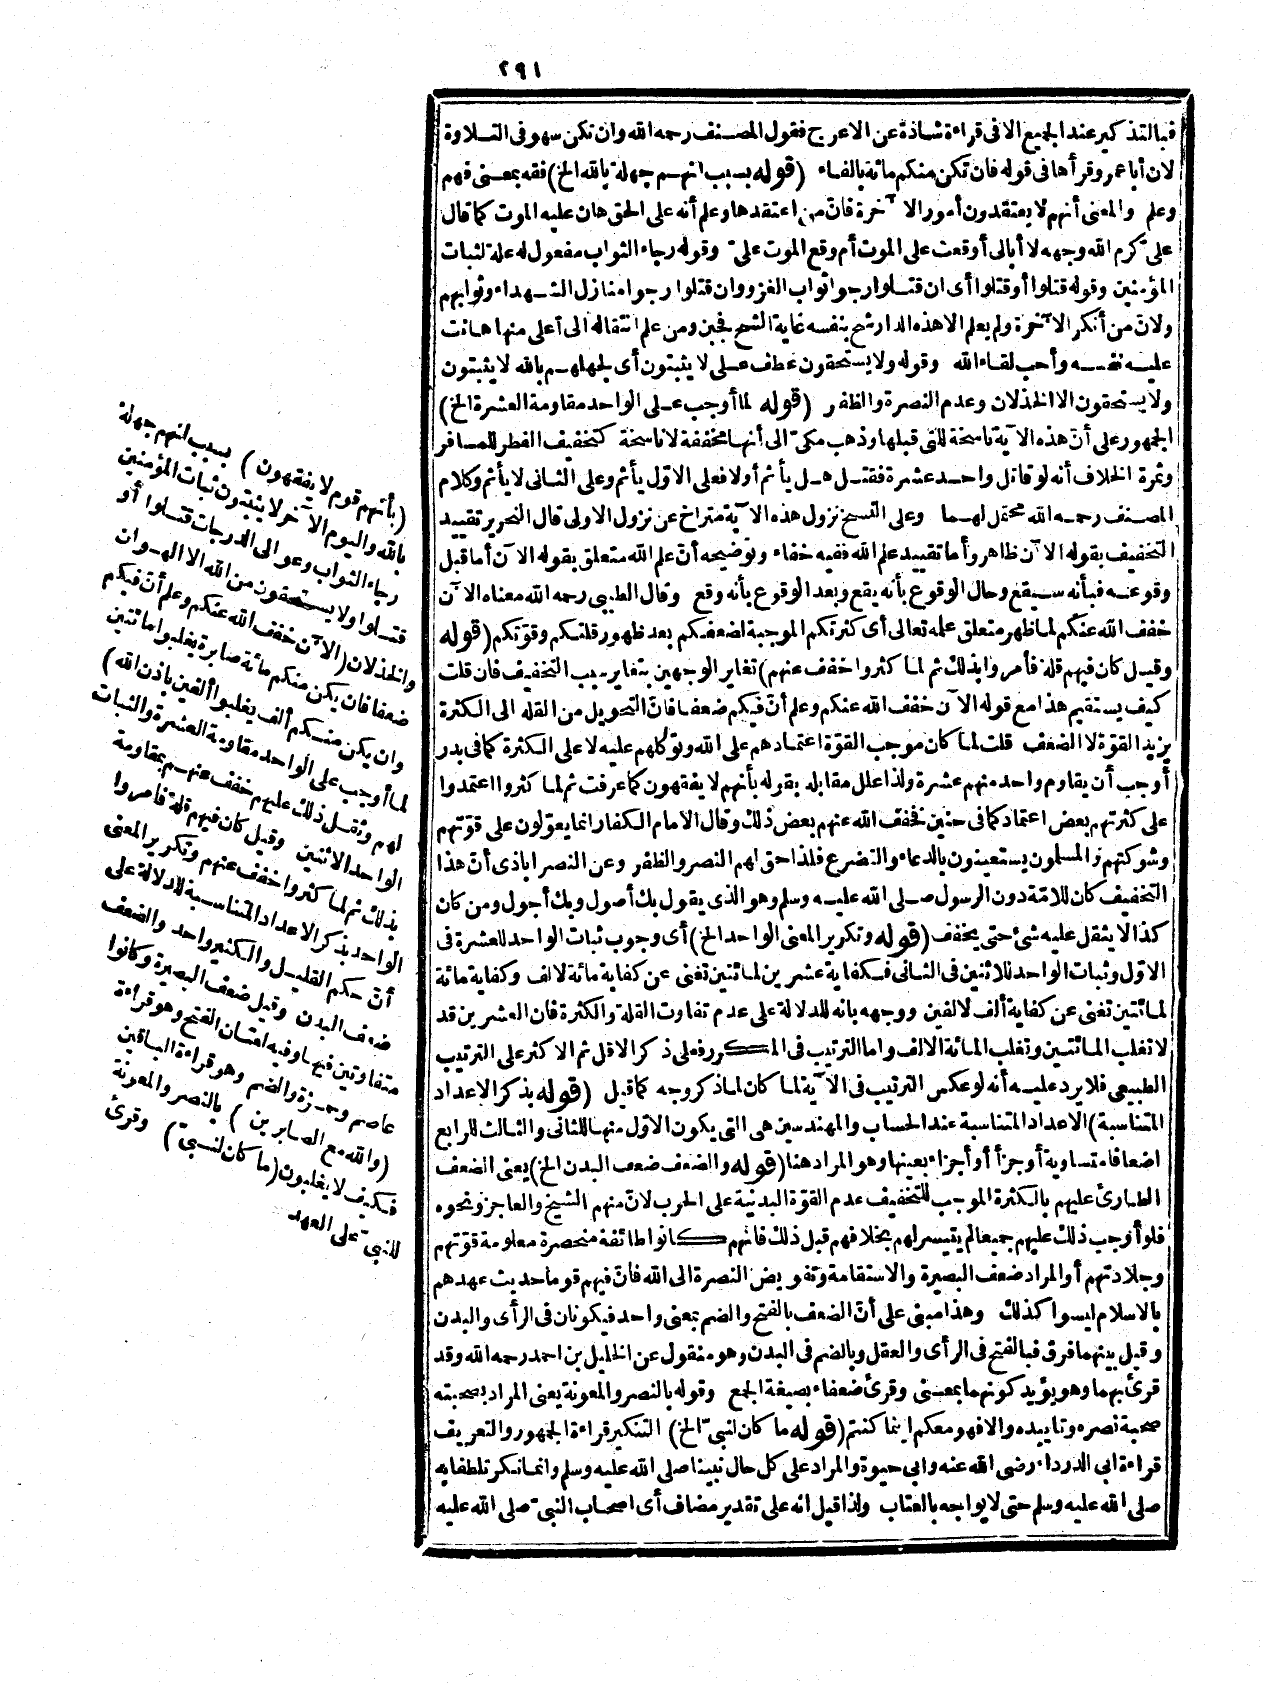 ٢٩١
فبالتذكير عند الجميع الا فى قراءة شاذة عن الاعرج فقول المصنف رحمه الله وان تكن سهو فى التلاوة
لان أبا عمرو قرأها فى قوله فان تكن منكم مائة بالفاء (قوله بسبب انهم جهلة بالله الخ) فقه بمعنى فهم
وعلم والمعنى أنهم لا يعتقدون أمور الآخرة فانّ من اعتقدها وعلم أنه على الحق هان عليه الموت كما قال
علىّ كرم الله وجهه لا أبالى أوقعت على الموت أم وقع الموت علىّ وقوله رجاء الثواب مفعول له علة لثبات
المؤمنين وقوله قتلوا أو قتلوا أى ان قتلوا رجوا ثواب الغزو وان قتلوا رجوا منازل الشهداء وثوابهم
ولانّ من أنكر الآخرة ولم يعلم الا هذه الدار شح بنفسه غاية الشح فجبن ومن علم انتقاله الى أعلى منها هانت
عليه نفسه وأحب لقاء الله وقوله ولا يستحقون عطف على لا يثبتون أى لجهلهم بالله لا يثبتون
ولا يستحقون الا الخذلان وعدم النصرة والظفر (قوله لما أوجب على الواحد مقاومة العشرة الخ)
الجمهور على أنّ هذه الآية ناسخة للتى قبلها وذهب مكىّ الى أنها مخففة لا ناسخة كتخفيف الفطر للمسافر
وثمرة الخلاف أنه لو قاتل واحد عشرة فقتل هل يأثم أولا فعلى الاوّل يأثم وعلى الثانى لا يأثم وكلام
المصنف رحمه الله محتمل لهما وعلى النسخ نزول هذه الآية متراخ عن نزول الاولى قال النحرير تقييد
التخفيف بقوله الآن ظاهر وأما تقييد علم الله ففيه خفاء وتوضيحه أنّ علم الله متعلق بقوله الآن أما قبل
وقوعه فبأنه سيقع وحال الوقوع بأنه يقع وبعد الوقوع بأنه وقع وقال الطيبى رحمه الله معناه الآن
خفف الله عنكم لما ظهر متعلق علمه تعالى أى كثرتكم الموجبة لضعفكم بعد ظهور قلتكم وقوّتكم (قوله
وقيل كان فيهم قلة فأمروا بذلك ثم لما كثروا خفف عنهم) تغاير الوجهين بتغاير سبب التخفيف فان قلت
كيف يستقيم هذا مع قوله الآن خفف الله عنكم وعلم أنّ فيكم ضعفا فانّ التحويل من القلة الى الكثرة
يزيد القوّة لا الضعف قلت لما كان موجب القوّة اعتمادهم على الله وتوكلهم عليه لا على الكثرة كما فى بدر
أوجب أن يقاوم واحد منهم عشرة ولذا علل مقابله بقوله بأنهم لا يفقهون كما عرفت ثم لما كثروا اعتمدوا
على كثرتهم بعض اعتماد كما فى حنين فخفف الله عنهم بعض ذلك وقال الامام الكفار انما يعوّلون على قوّتهم
وشوكتهم والمسلمون يستعينون بالدعاء والتضرع فلذا حق لهم النصر والظفر وعن النصراباذى أنّ هذا
التخفيف كان للامّة دون الرسول صلى الله عليه وسلم وهو الذى يقول بك أصول وبك أجول ومن كان
كذا لا يثقل عليه شئ حتى يخفف (قوله وتكرير المعنى الواحد الخ) أى وجوب ثبات الواحد للعشرة فى
الاوّل وثبات الواحد للاثنين فى الثانى فكفاية عشرين لمائتين تغنى عن كفاية مائة لالف وكفاية مائة
لمائتين تغنى عن كفاية ألف لالفين ووجهه بانه للدلالة على عدم تفاوت القلة والكثرة فان العشرين قد
لا تغلب المائتين وتغلب المائة الالف واما الترتيب فى المكرر فعلى ذكر الاقل ثم الاكثر على الترتيب
الطبيعى فلا يرد عليه أنه لو عكس الترتيب فى الآية لما كان لما ذكر وجه كما قيل (قوله بذكر الاعداد
المتناسبة) الاعداد المتناسبة عند الحساب والمهندسين هى التى يكون الاوّل منها للثانى والثالث للرابع
اضعافا متساوية أو جزأ أو أجزاء بعينها وهو المراد هنا (قوله والضعف ضعف البدن الخ) يعنى الضعف
الطارئ عليهم بالكثرة الموجب للتخفيف عدم القوّة البدنية على الحرب لانّ منهم الشيخ والعاجز ونحوه
فلو أوجب ذلك عليهم جميعا لم يتيسر لهم بخلافهم قبل ذلك فانهم كانوا طائفة منحصرة معلومة قوّتهم
وجلادتهم أو المراد ضعف البصيرة والاستقامة وتفويض النصرة الى الله فانّ فيهم قوما حديث عهدهم
بالاسلام ليسوا كذلك وهذا مبنى على أنّ الضعف بالفتح والضم بمعنى واحد فيكونان فى الرأى والبدن
وقيل بينهما فرق فبالفتح فى الرأى والعقل وبالضم فى البدن وهو منقول عن الخليل بن احمد رحمه الله وقد
قرئ بهما وهو يؤيد كونهما بمعنى وقرئ ضعفاء بصيغة الجمع وقوله بالنصر والمعونة يعنى المراد بصحبته
صحبة نصره وتاييده والا فهو معكم اينما كنتم (قوله ما كان لنبىّ الخ) التنكير قراءة الجمهور والتعريف
قراءة ابى الدرداء رضى الله عنه وابى حيوة والمراد على كل حال نبينا صلى الله عليه وسلم وانما نكر تلطفا به
صلى الله عليه وسلم حتى لا يواجه بالعتاب ولذا قيل انه على تقدير مضاف أى اصحاب النبىّ صلى الله عليه
(بأنهم قوم لا يفقهون) بسبب انهم جهلة
بالله واليوم الآخر لا يثبتون ثبات المؤمنين
رجاء الثواب وعوالى الدرجات قتلوا أو
قتلوا ولا يستحقون من الله الا الهوان
والخذلان (الآن خفف الله عنكم وعلم أنّ فيكم
ضعفا فان يكن منكم مائة صابرة يغلبوا مائتين
وان يكن منكم ألف يغلبوا ألفين باذن الله)
لما أوجب على الواحد مقاومة العشرة والثبات
لهم وثقل ذلك عليهم خفف عنهم بمقاومة
الواحد الاثنين وقيل كان فيهم قلة فأمروا
بذلك ثم لما كثروا خفف عنهم وتكرير المعنى
الواحد بذكر الاعداد المتناسبة للدلالة على
أنّ حكم القليل والكثير واحد والضعف
ضعف البدن وقيل ضعف البصيرة وكانوا
متفاوتين فيها وفيه لغتان الفتح وهو قراءة
عاصم وحمزة والضم وهو قراءة الباقين
(والله مع الصابرين) بالنصر والمعونة
فكيف لا يغلبون (ما كان لنبىّ) وقرئ
للنبىّ على العهد